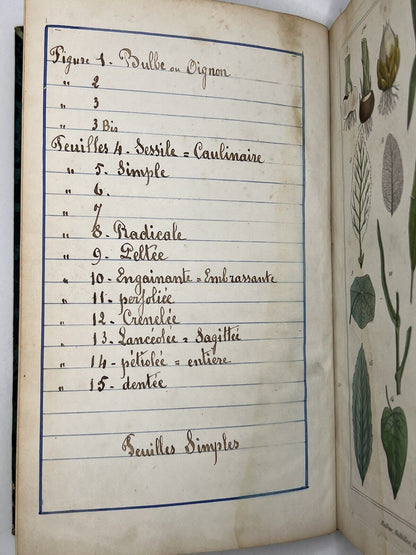 Figure 1. Bulbe ou Oignon
" 2
" 3
" 3 Bis
Feuilles 4. Sessile = Caulinaire
" 5. Simple
" 6.
" 7
" 8. Radicale
" 9. Peltée
" 10. Engainante = Embrassante
" 11. perfoliée
" 12. Crenelée
" 13. Lanceolée = Sagittée
" 14. pétiolée = entière
" 15. dentée
Feuilles Simples